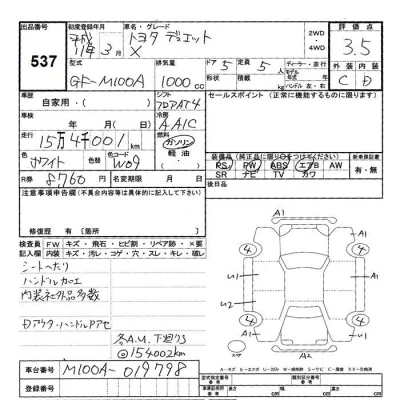 出品番号 初度登録年月 車名・グレード 2WD ・ 4WD 評価点
537 平成 11年 3月 トヨタ デュエット X 3.5
型式 排気量 ドア 定員 ディーラー・並行 外装 内装
GF-M100A 1000 CC 5 5 形状 積載 kg モデル年式 年 ハンドル 左・右 C D
車歴 シフト セールスポイント (正常に機能するものに限ります)
自家用・ フロアAT4
車検 年 月 日 冷房 AAIC
走行 15万4001 km 燃料 ガソリン 軽油
色 ホワイト 色コード W09 装備品(純正品に限り○をつけてください) 新車保証書
R券 8760 円 PS PW ABS エアB AW 有・無
SR ナビ TV カワ
注意事項申告欄(不具合内容等は具体的に記入してください) 後日品
修復歴 有 [箇所
検査員 FW キズ・飛石・ヒビ割・リペア跡・×要
記入欄 内装 キズ・汚れ・コゲ・穴・スレ・キレ・破れ
シートへたり
ハンドルカエ
内装社外品多数
A1 A1
4 4
U1 A1
U2
4 4
A1
A2
@154002km
車台番号 M100A-019798
登録番号
型式指定番号 類別区分番号 長さ cm 幅 cm 高さ cm